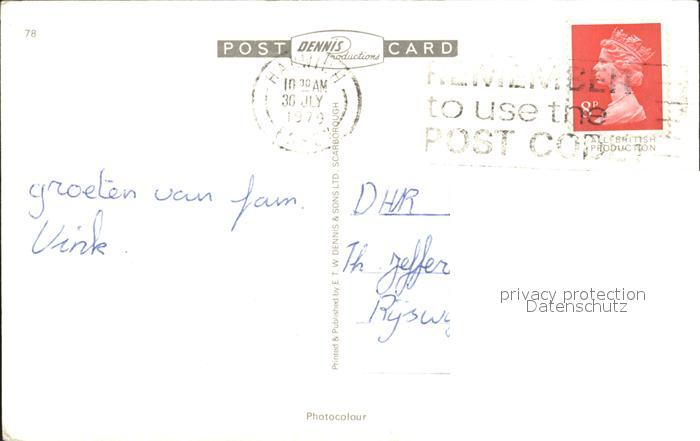 78
POST DENNIS Productions CARD
HARWICH
10 30 AM
30 JLY
1979
REMEMBER
to use the
POST CODE
8P
ALL-BRITISH
PRODUCTION
groeten van fam.
Vink.
Printed & Published by E. T. W. DENNIS & SONS LTD. SCARBOROUGH
DHR
Th.
Rijswij
privacy protection
Datenschutz
Photocolour